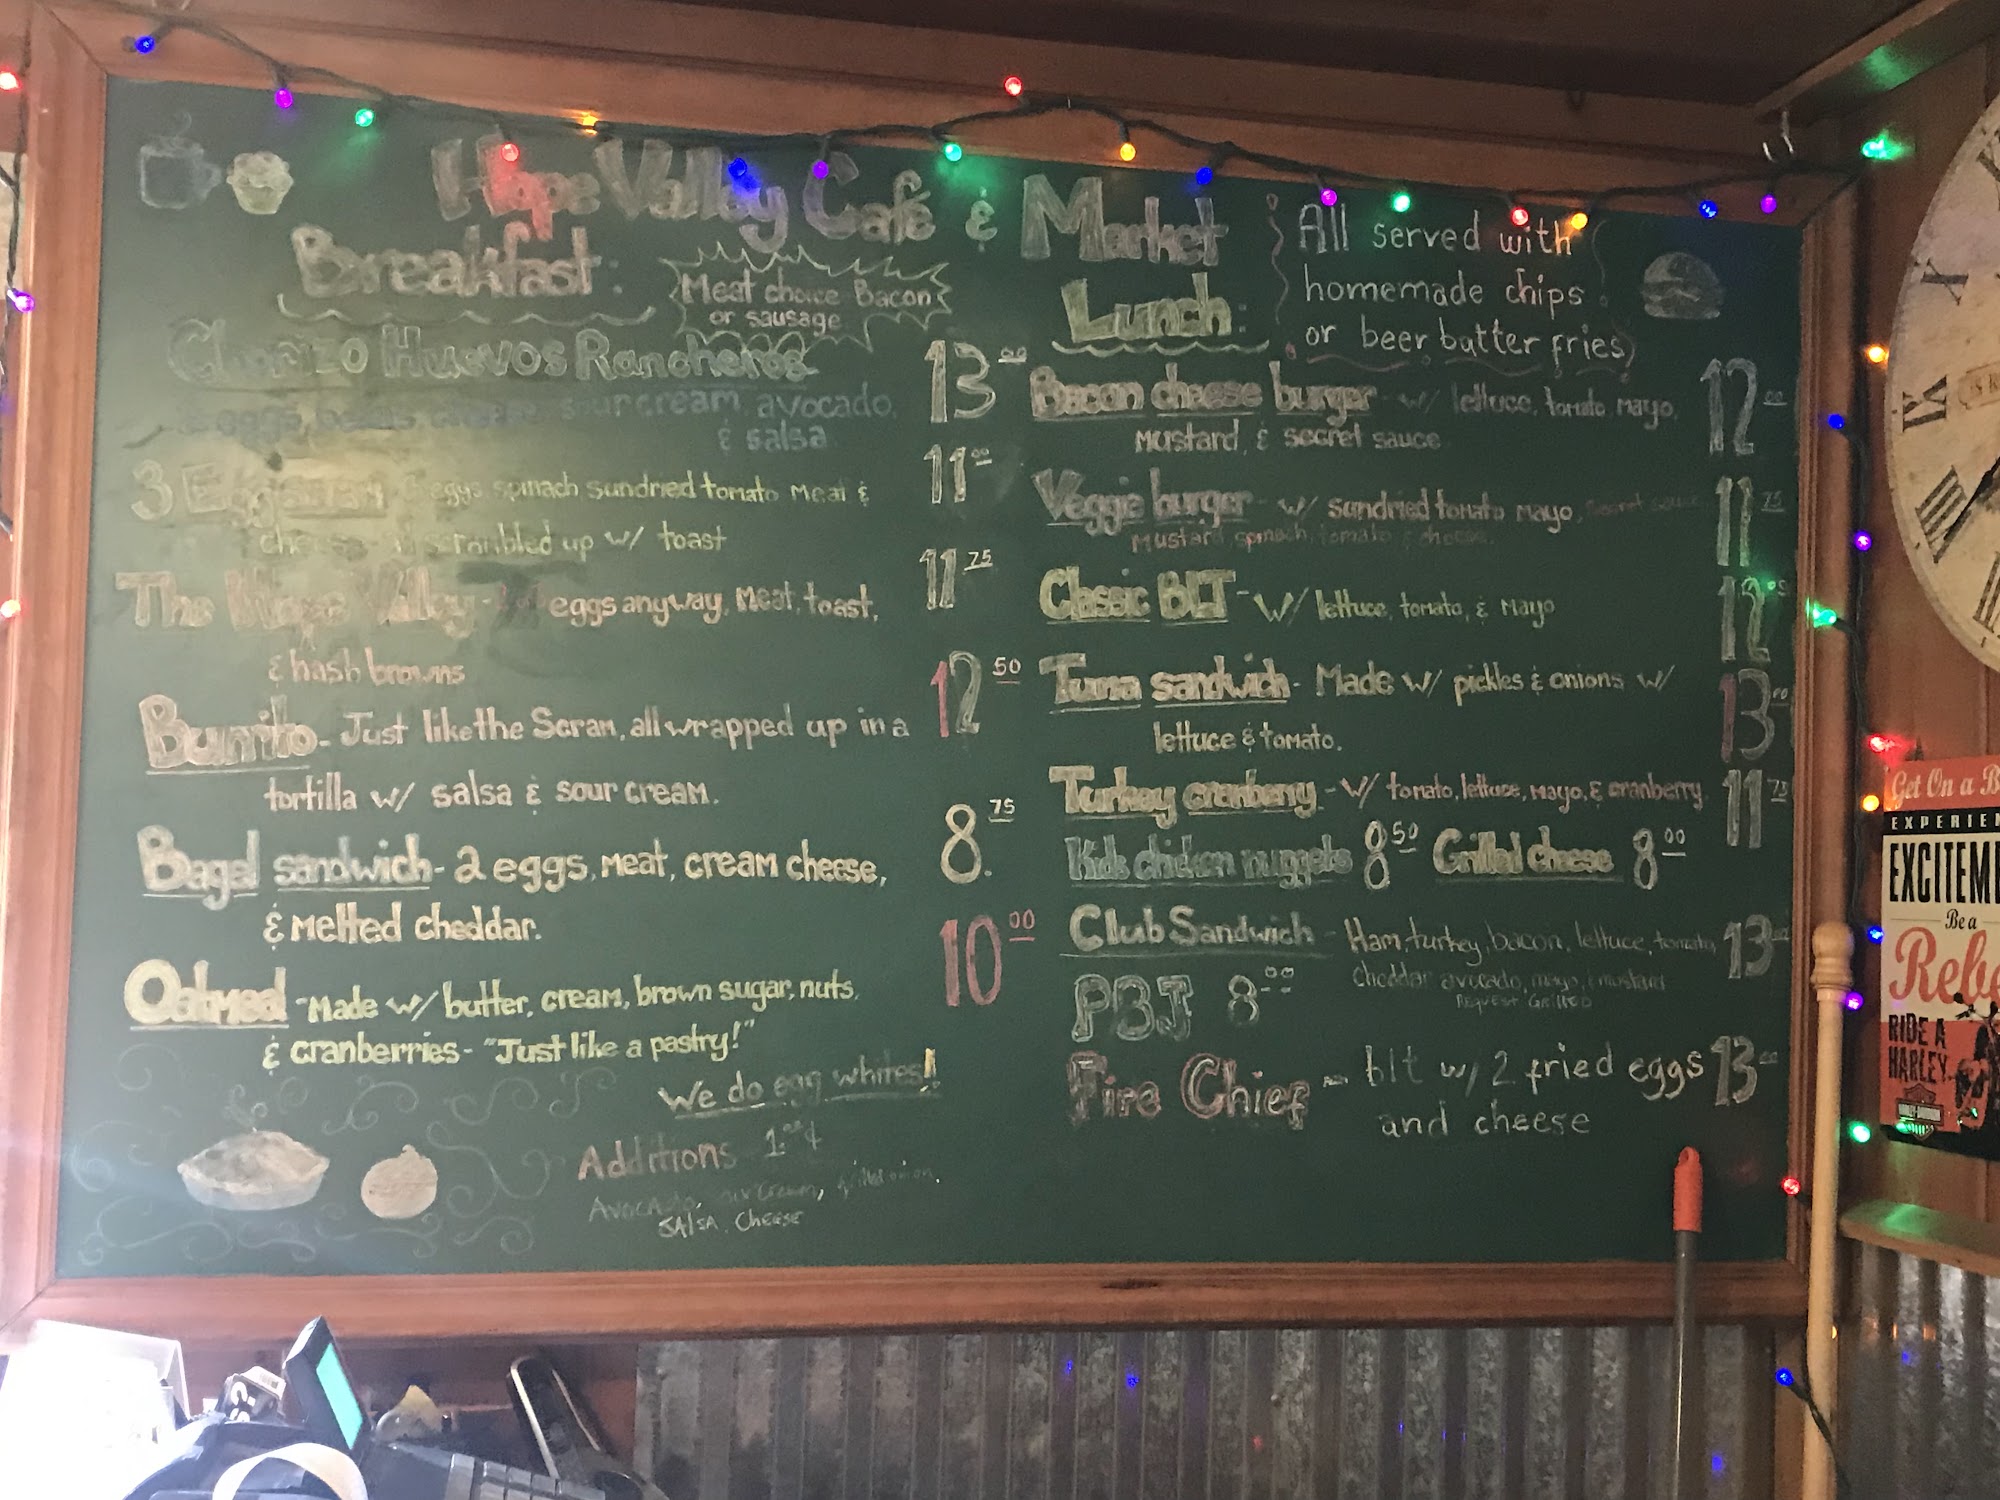 Hope Valley Café & Market
Breakfast:
Meat choice Bacon
or sausage
Chorizo Huevos Rancheros 13.00
eggs, sour cream, avocado,
& salsa
3 Egg 11.00
eggs spinach sundried tomato Meat &
scrambled up w/ toast
The Hope Valley - eggs anyway, Meat, toast, 11.75
& hash browns
Burrito - Just like the Scram, all wrapped up in a 12.50
tortilla w/ salsa & sour cream.
Bagel sandwich - 2 eggs, Meat, cream cheese, 8.75
& Melted cheddar.
Oatmeal - Made w/ butter, cream, brown sugar, nuts, 10.00
& cranberries - "Just like a pastry!"
We do egg whites!
Additions 1.00 ¢
Avocado, sour cream, grilled onion,
SAlSA, CHEESE
Lunch:
All served with
homemade chips
or beer batter fries)
Bacon cheese burger - w/ lettuce, tomato, mayo, 12.00
Mustard, & secret sauce
Veggie burger - w/ sundried tomato mayo, secret sauce 11.75
Mustard, spinach, tomato & cheese.
Classic BLT - w/ lettuce, tomato, & Mayo 12.00
Tuna sandwich - Made w/ pickles & onions w/ 13.00
lettuce & tomato.
Turkey cranberry - w/ tomato, lettuce, mayo, & cranberry 11.75
Kids chicken nuggets 8.50 Grilled cheese 8.00
Club Sandwich - Ham, turkey, bacon, lettuce, tomato, 13.00
Cheddar avocado, mayo, & mustard
Request Grilled
PBJ 8.00
Fire Chief - blt w/ 2 fried eggs 13.00
and cheese
Get On a B
EXPERIEN
EXCITEM
Be a
Rebe
RIDE A
HARLEY
HARLEY-DAVIDSON